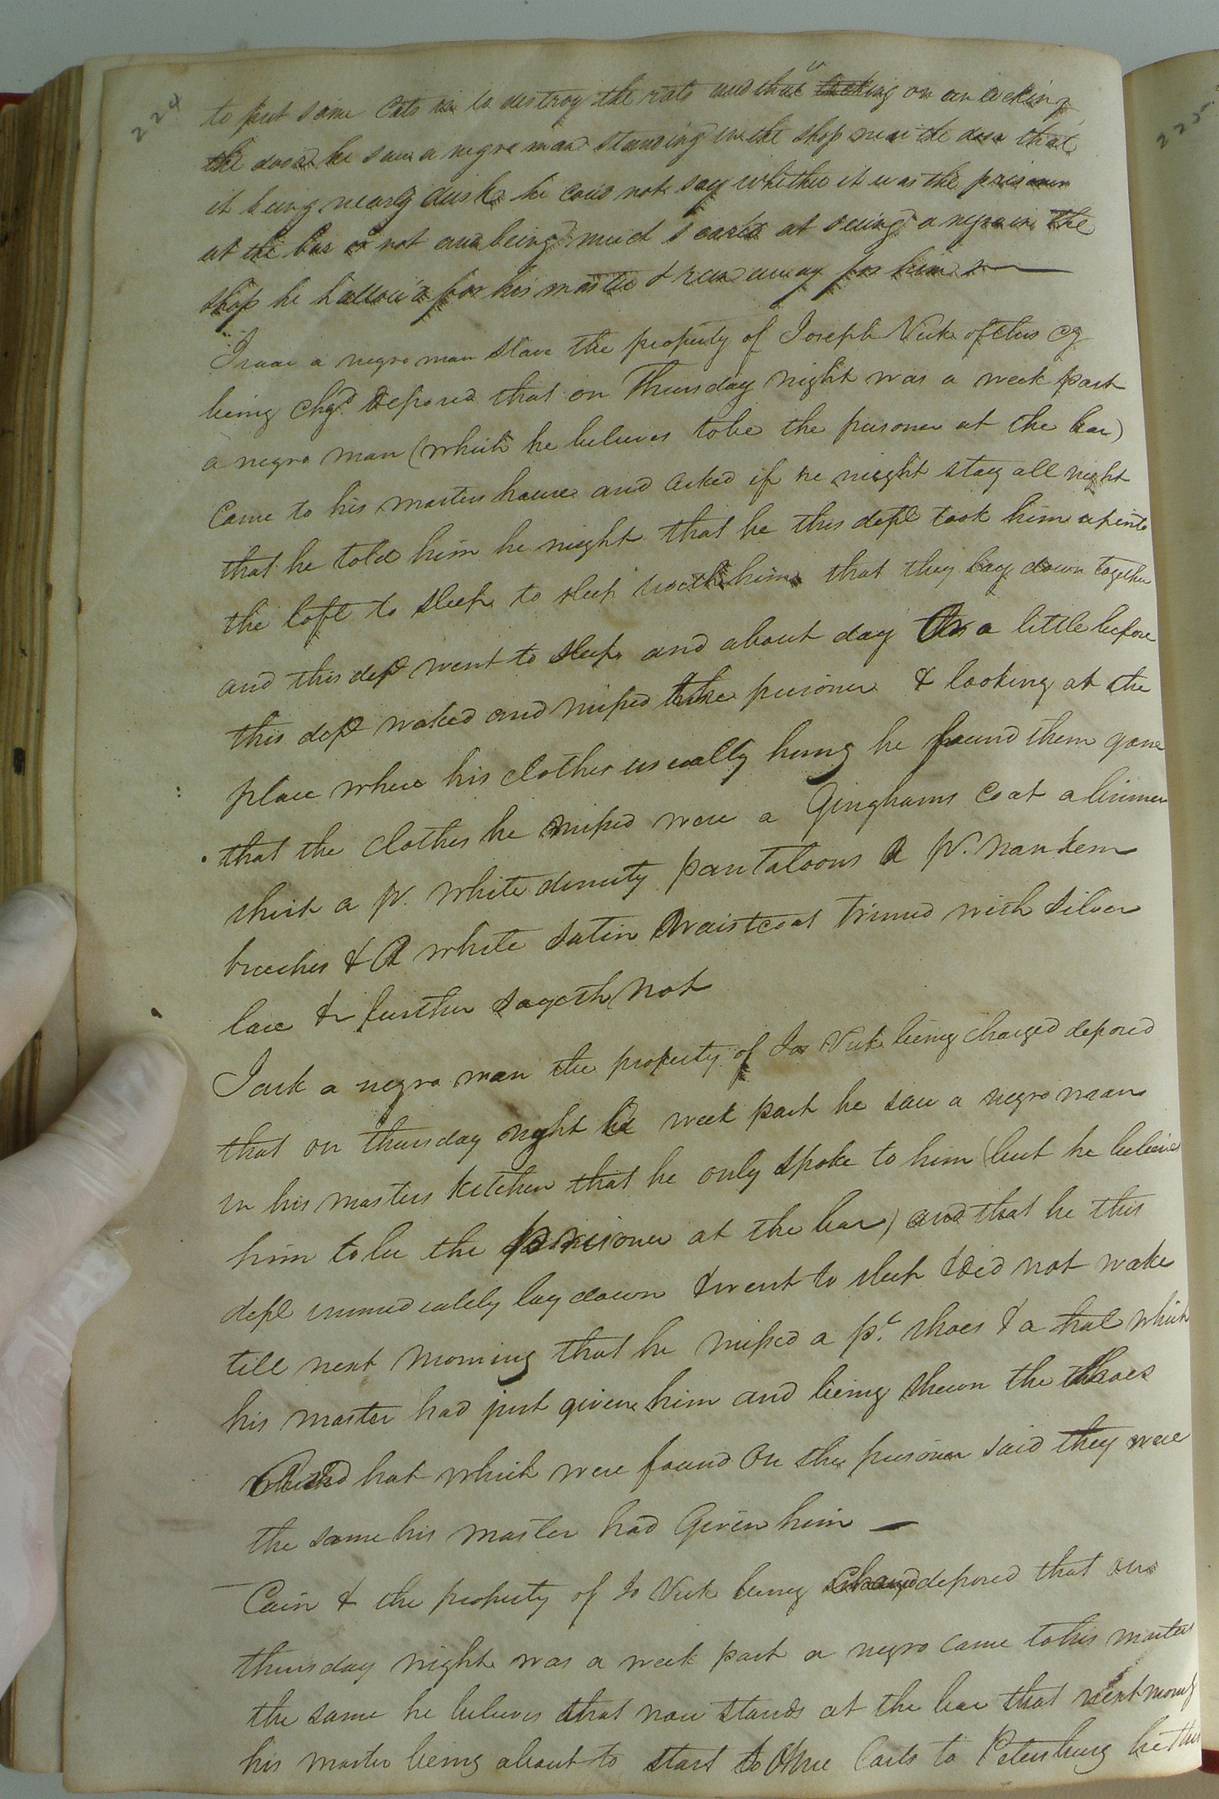 224
to put some Cats in to destroy the rats and that on unlocking
the door he saw a negro man standing in the shop near the door that
it being nearly dusk he coud not say whether it was the prisoner
at the bar or not and being much scared at seeing a negro in the
shop he hallow'd for his master & ran away for him
Isaac a negro man slave the property of Joseph Vick of this Cy
being chgd deposed that on Thursday night was a week past
a negro man (which he believes to be the prisoner at the bar)
Came to his masters house and asked if he might stay all night
that he told him he might that he this dept took him up into
the loft to sleep to sleep with him that they lay down together
and this dept went to sleep and about day Or a little before
this dept waked and missed the prisoner & looking at the
place where his clothes usually hung he found them gone
that the clothes he missed were a Ginghams Coat a linnen
shirt a pr. white dimity pantaloons a pr. nankeen
breeches & a white satin Waistcoat trimed with silver
lace & further sayeth not
Jack a negro man the property of Jos Vick being charged deposed
that on thursday night week past he saw a negro man
in his masters kitchen that he only spoke to him (but he believes
him to be the prisoner at the bar) and that he this
dept immediately lay down & went to sleep & did not wake
till next morning that he missed a pr. shoes & a hat which
his master had just given him and being shewn the shoes
and hat which were found on the prisoner said they were
the same his master had Given him —
Cain & the property of Jo Vick being deposed that on
thursday night was a week past a negro came to his masters
the same he believes that now stands at the bar that next morng
his master being about to start to Carts to Petersburg he this
225